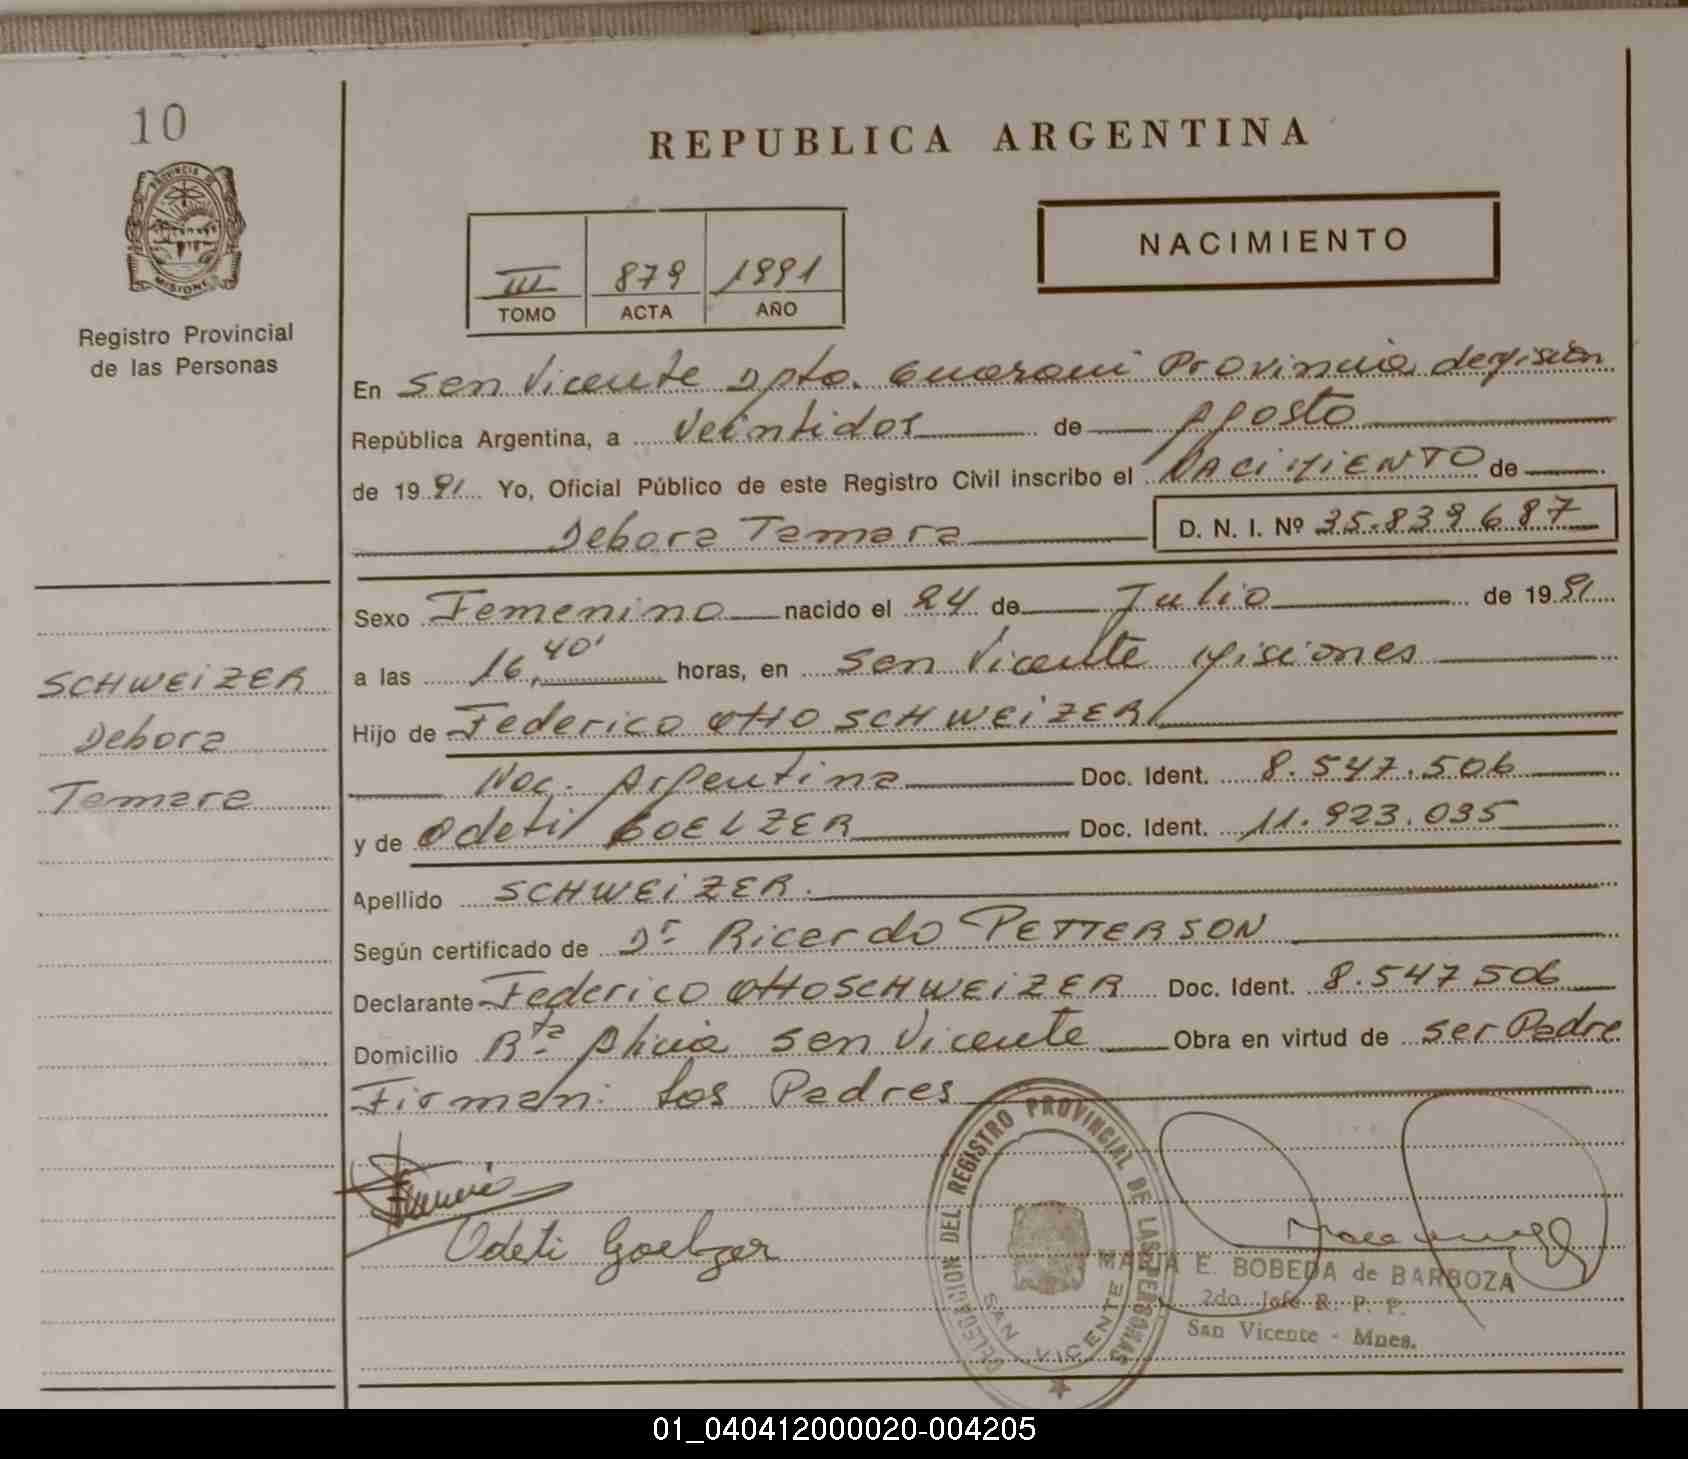 10
REPUBLICA ARGENTINA
NACIMIENTO
III 879 1991
TOMO ACTA AÑO
PROVINCIA DE MISIONES
Registro Provincial
de las Personas
En San Vicente Dpto. Guarani Provincia de Mision
República Argentina, a Veintidos de Agosto
de 1991 Yo, Oficial Público de este Registro Civil inscribo el NACIMIENTO de
Debora Tamara D. N. I. Nº 35.839687
Sexo Femenino nacido el 24 de Julio de 1991
a las 16,40' horas, en San Vicente Misiones
SCHWEIZER
Debora
Tamara
Hijo de Federico Otto SCHWEIZER
Nac. Argentina Doc. Ident. 8.547.506
y de Odeti GOELZER Doc. Ident. 11.923.035
Apellido SCHWEIZER.
Según certificado de Dr Ricardo PETTERSON
Declarante Federico Otto SCHWEIZER Doc. Ident. 8.547506
Domicilio Bta Alicia San Vicente Obra en virtud de ser Padre
Firman: Los Padres
Odeti Goelzer
DELEGACION DEL REGISTRO PROVINCIAL DE LAS PERSONAS
SAN VICENTE
MARIA E. BOBEDA de BARBOZA
2do. Jefe R. P. P.
San Vicente - Mnes.
01_040412000020-004205